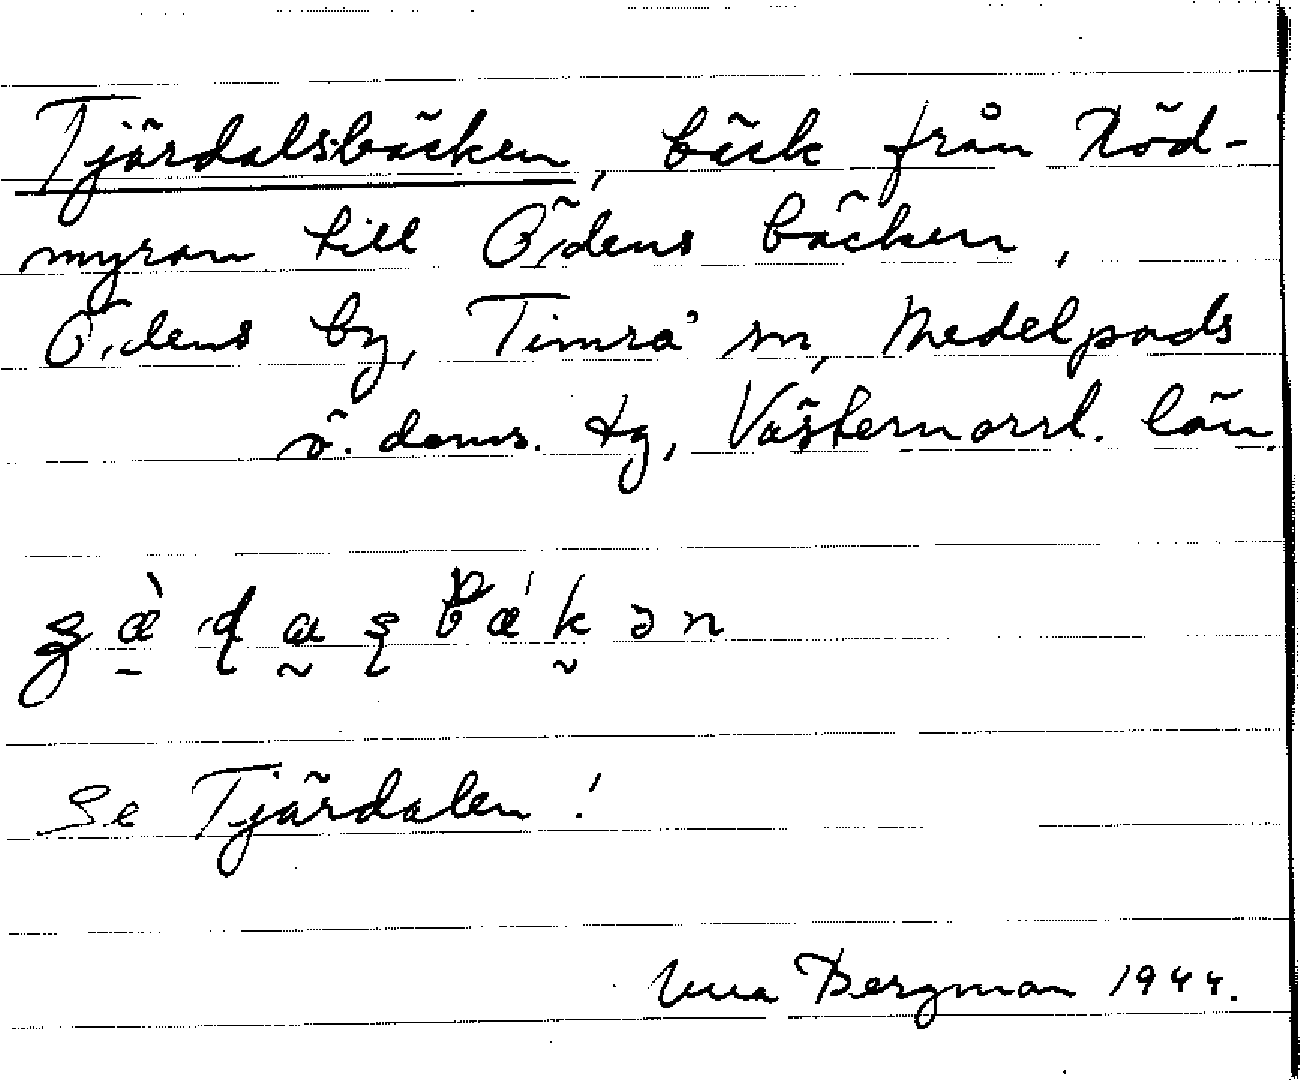 Tjärdalsbäcken, bäck från Röd-
myran till Ödens bäcken,
Ödens by, Timrå sn, Medelpads
ö. doms. tg, Västernorrl. län.
Se Tjärdalen!
Bergman 1944.